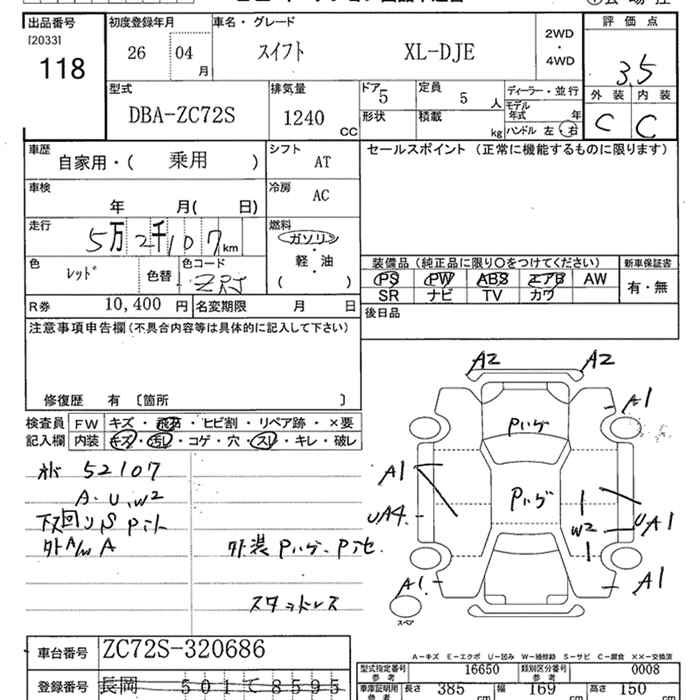 出品番号 初度登録年月 車名・グレード 評価点
[2033]
118 26 04月 スイフト XL-DJE 2WD・4WD 3.5
型式 排気量 ドア 定員 ディーラー・並行 外装 内装
DBA-ZC72S 1240CC 5 5人 モデル年式 年 C C
形状 積載 kg ハンドル 左・右
車歴 自家用・( 乗用 ) シフト AT セールスポイント (正常に機能するものに限ります)
車検 年 月( 日) 冷房 AC
走行 5万2千107km 燃料 ガソリン・軽・油 ( )
色 レッド 色替 色コード ZRJ
装備品 (純正品に限り○をつけてください) 新車保証書
PS PW ABS エアB AW 有・無
SR ナビ TV カワ
R券 10,400円 名変期限 月 日 後日品
注意事項申告欄(不具合内容等は具体的に記入して下さい)
修復歴 有 〔箇所 〕
検査員記入欄 FW キズ・飛石・ヒビ割・リペア跡・×要
内装 キズ・汚レ・コゲ・穴・スレ・キレ・破レ
52107
A・U、W2
下回りS Pﾋﾄ
外A/W A
外装 Pハゲ、Pﾄﾋ
スタッドレス
A2 A2
A1
Pハゲ
A1
Pハゲ
UA4 W2 UA1
A1 A1
スペア
A-キズ E-エクボ U-凹み W-補修跡 S-サビ C-腐食 ××-交換済
車台番号 ZC72S-320686
型式指定番号 参考 16650 類別区分番号 参考 0008
登録番号 長岡 501 て 8595
車庫証明用 参考 長さ 385cm 幅 169cm 高さ 150cm